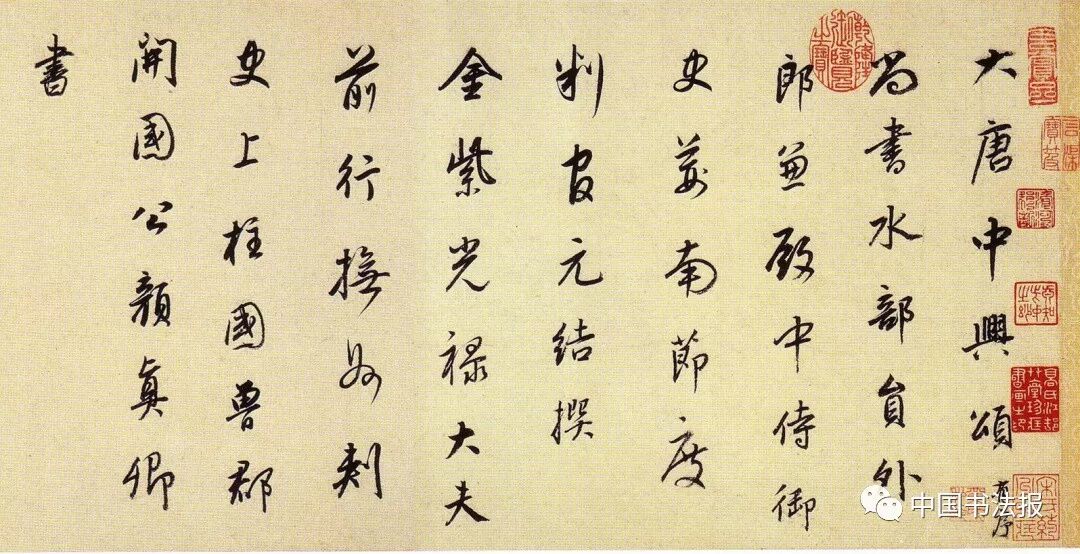 大唐中興頌有序
尚書水部員外
郎兼殿中侍御
史荊南節度
判官元結撰
金紫光禄大夫
前行撫州刺
史上柱國魯郡
開國公顏真卿
書
乾隆御覽之寶
中国书法报